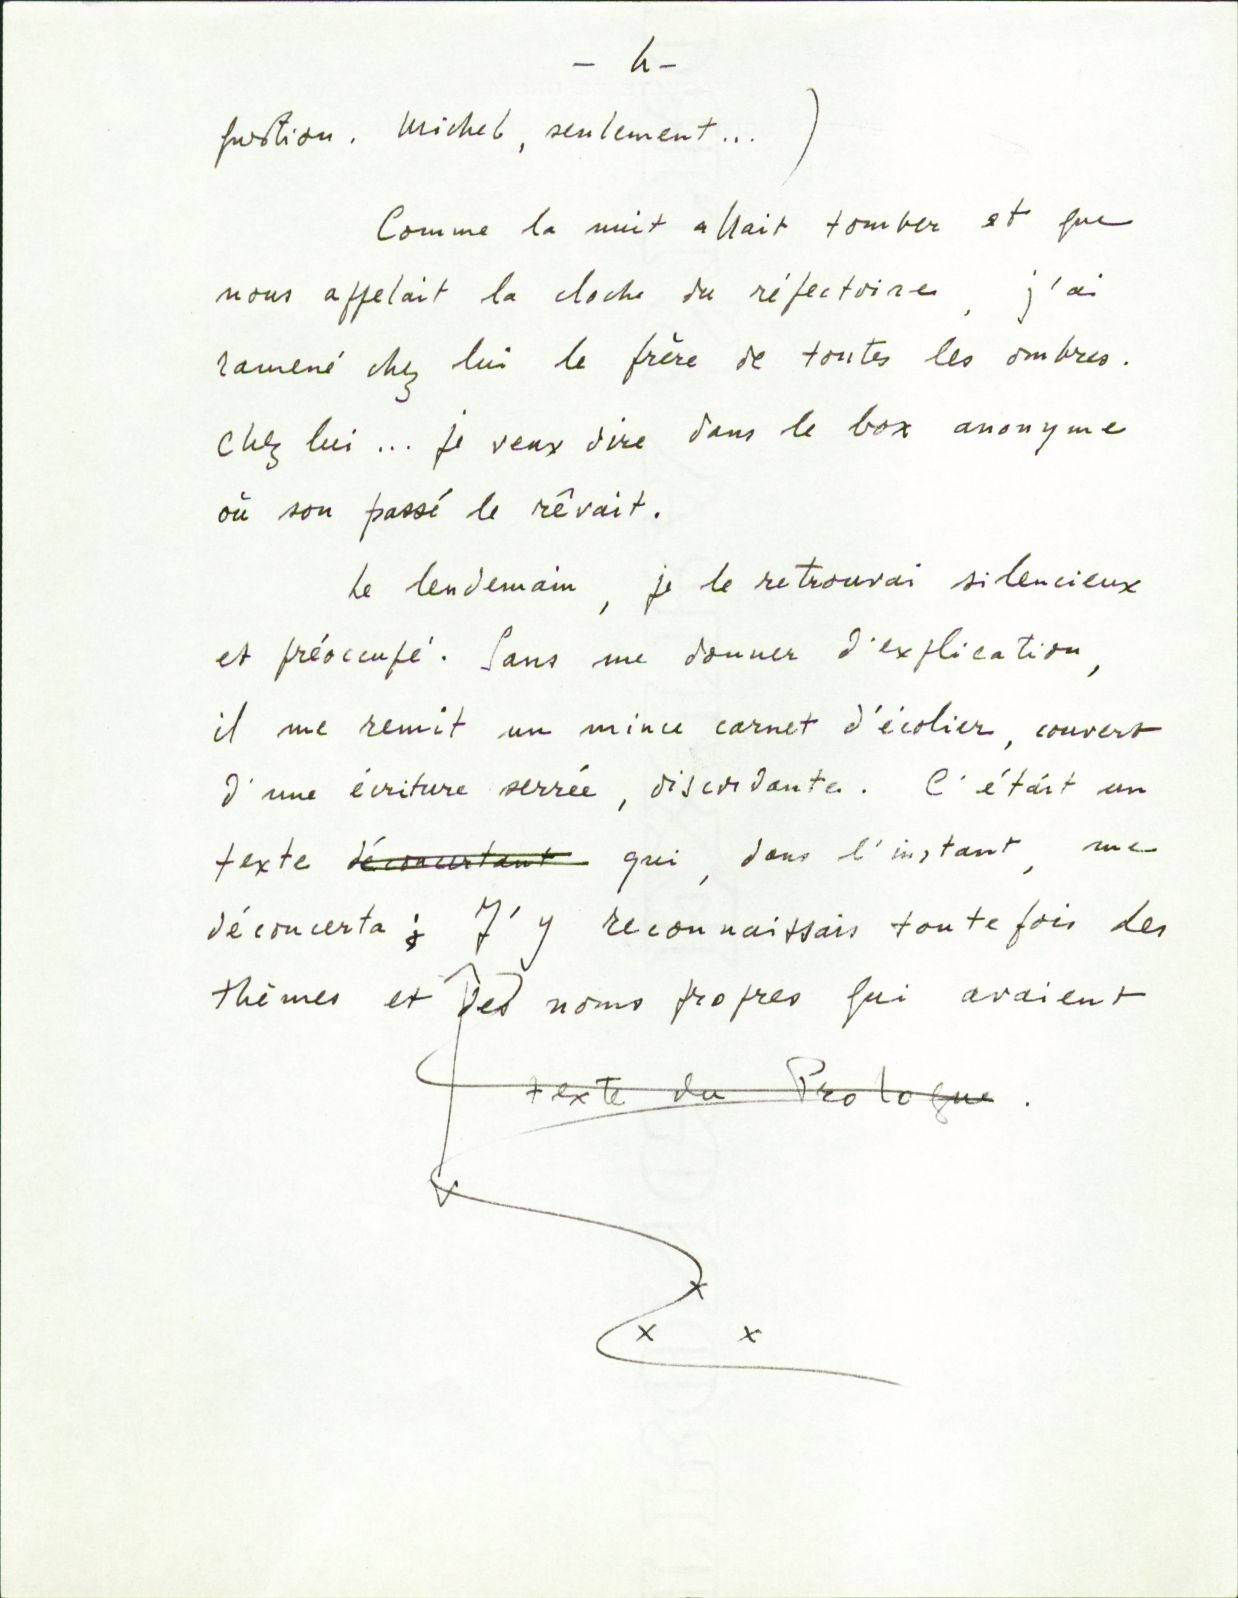 - 4 -
question. Michel, seulement... )
Comme la nuit allait tomber et que
nous appelait la cloche du réfectoire, j'ai
ramené chez lui le frère de toutes les ombres.
Chez lui... je veux dire dans le box anonyme
où son passé le rêvait.
Le lendemain, je le retrouvai silencieux
et préoccupé. Sans me donner d'explication,
il me remit un mince carnet d'écolier, couvert
d'une écriture serrée, discordante. C'était un
texte déconcertant qui, dans l'instant, me
déconcerta ; J'y reconnaissais toutefois des
thèmes et des noms propres qui avaient
texte du Prologue.
x
x x